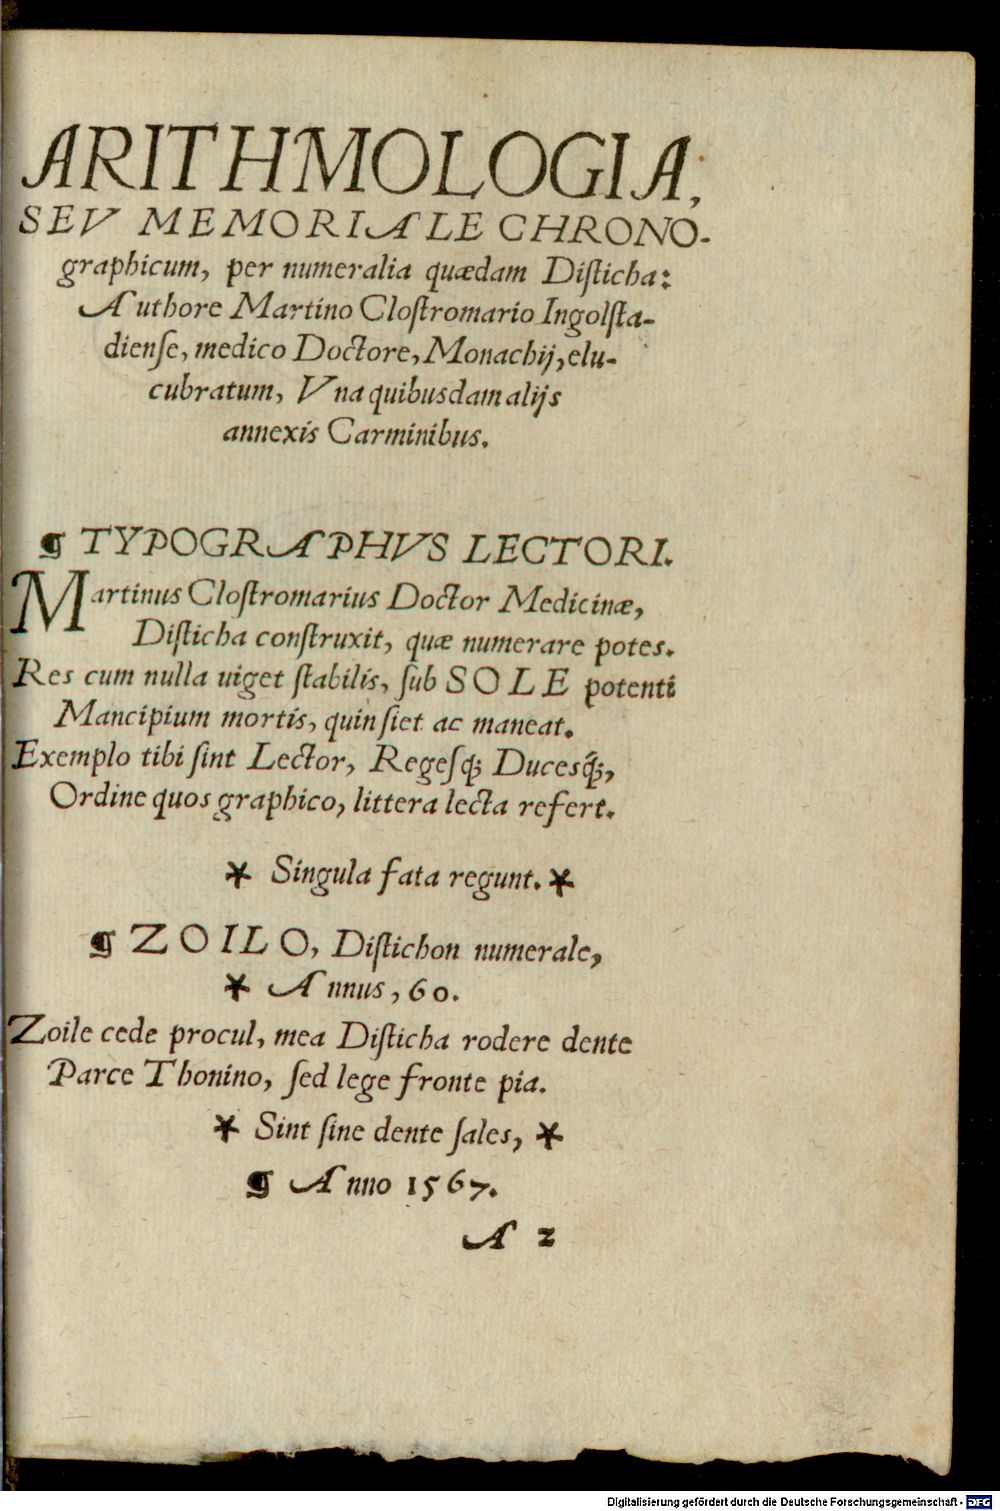 ARITHMOLOGIA,
SEV MEMORIALE CHRONO-
graphicum, per numeralia quædam Diſticha:
Authore Martino Cloſtromario Ingolſta-
dienſe, medico Doctore, Monachij, elu-
cubratum, Vna quibusdam alijs
annexis Carminibus.
¶ TYPOGRAPHVS LECTORI.
Martinus Cloſtromarius Doctor Medicinæ,
Diſticha conſtruxit, quæ numerare potes.
Res cum nulla uiget ſtabilis, ſub SOLE potenti
Mancipium mortis, quin ſiet ac maneat.
Exemplo tibi ſint Lector, Regeſq́; Ducesq́;,
Ordine quos graphico, littera lecta refert.
* Singula fata regunt. *
¶ ZOILO, Diſtichon numerale,
* Annus, 60.
Zoile cede procul, mea Diſticha rodere dente
Parce Thonino, ſed lege fronte pia.
* Sint ſine dente ſales, *
¶ Anno 1567.
A 2
Digitalisierung gefördert durch die Deutsche Forschungsgemeinschaft - DFG